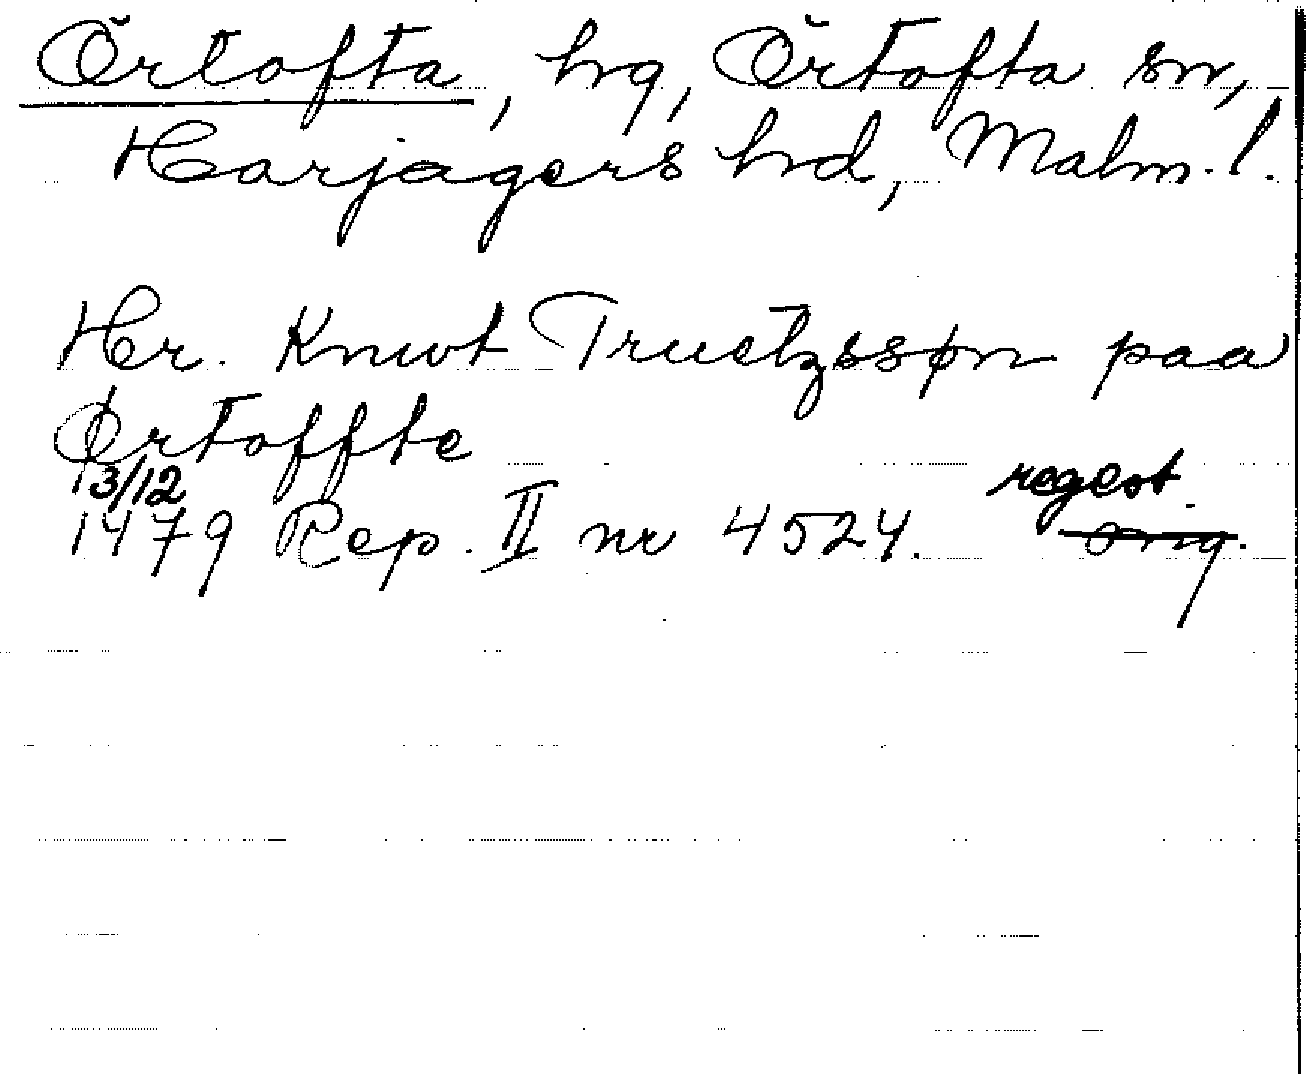 Örtofta, hg, Örtofta sn,
Harjagers hd, Malm. l.
Hr. Knwt Truetzssøn paa
Ørtoffte
13/12
1479 Rep. II nr 4524. regest
orig.